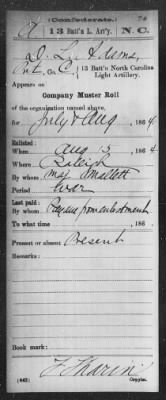 (Confederate.)
A 13 Batt'n L. Art'y. N. C.
D. L. Adams
Pvt, Co. 13 Batt'n North Carolina
Light Artillery.
Appears on
Company Muster Roll
of the organization named above,
for July & Aug, 1864
Enlisted:
When Aug 3, 1864
Where Raleigh
By whom Maj Mallett
Period War
Last paid:
By whom from enlistment
To what time , 186 .
Present or absent Present
Remarks:
Book mark:
(642) Copyist.